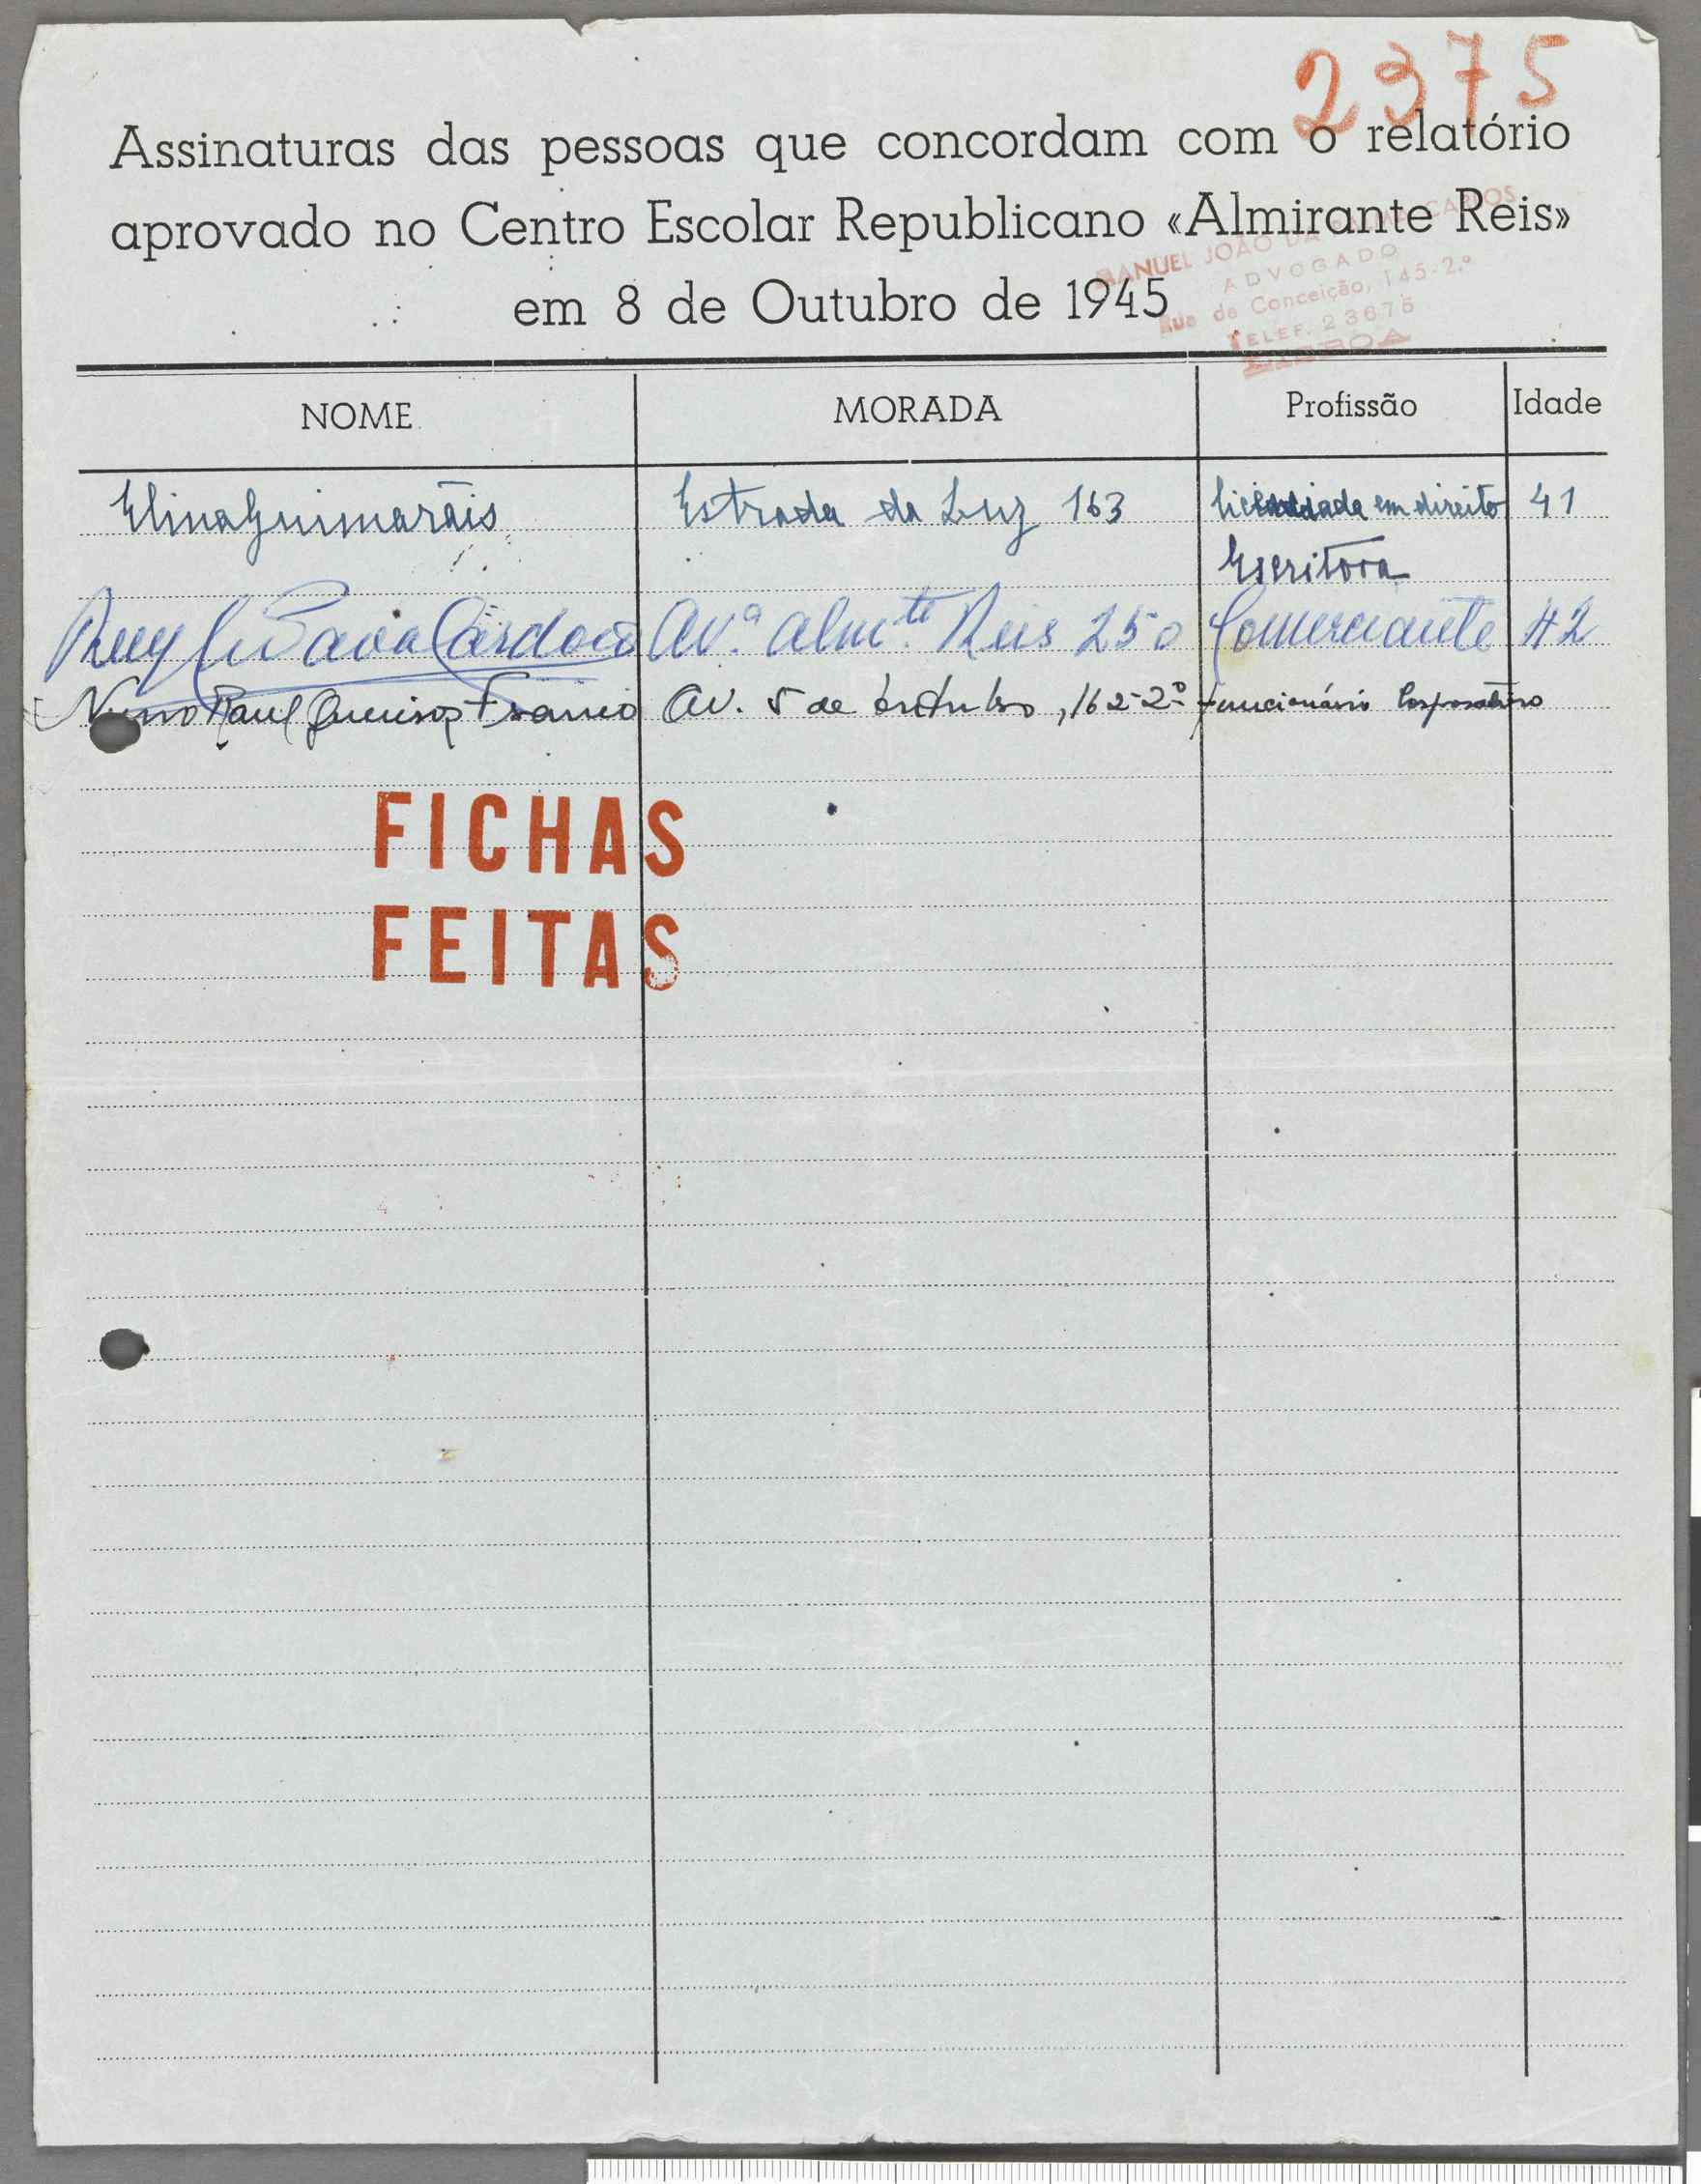 2375
Assinaturas das pessoas que concordam com o relatório
aprovado no Centro Escolar Republicano «Almirante Reis»
em 8 de Outubro de 1945
MANUEL JOÃO DA PALMA CARLOS
ADVOGADO
Rua da Conceição, 145-2.º
TELEF. 23675
LISBOA
NOME MORADA Profissão Idade
Elina Guimarãis Estrada da Luz 163 Licenciada em direito 41
Escritora
Ruy Paiva Cardoso Avª Almte Reis 250 Comerciante 42
Nuno Raul Queiroz Franco Av. 5 de Outubro, 162-2º Funcionário Corporativo
FICHAS
FEITAS